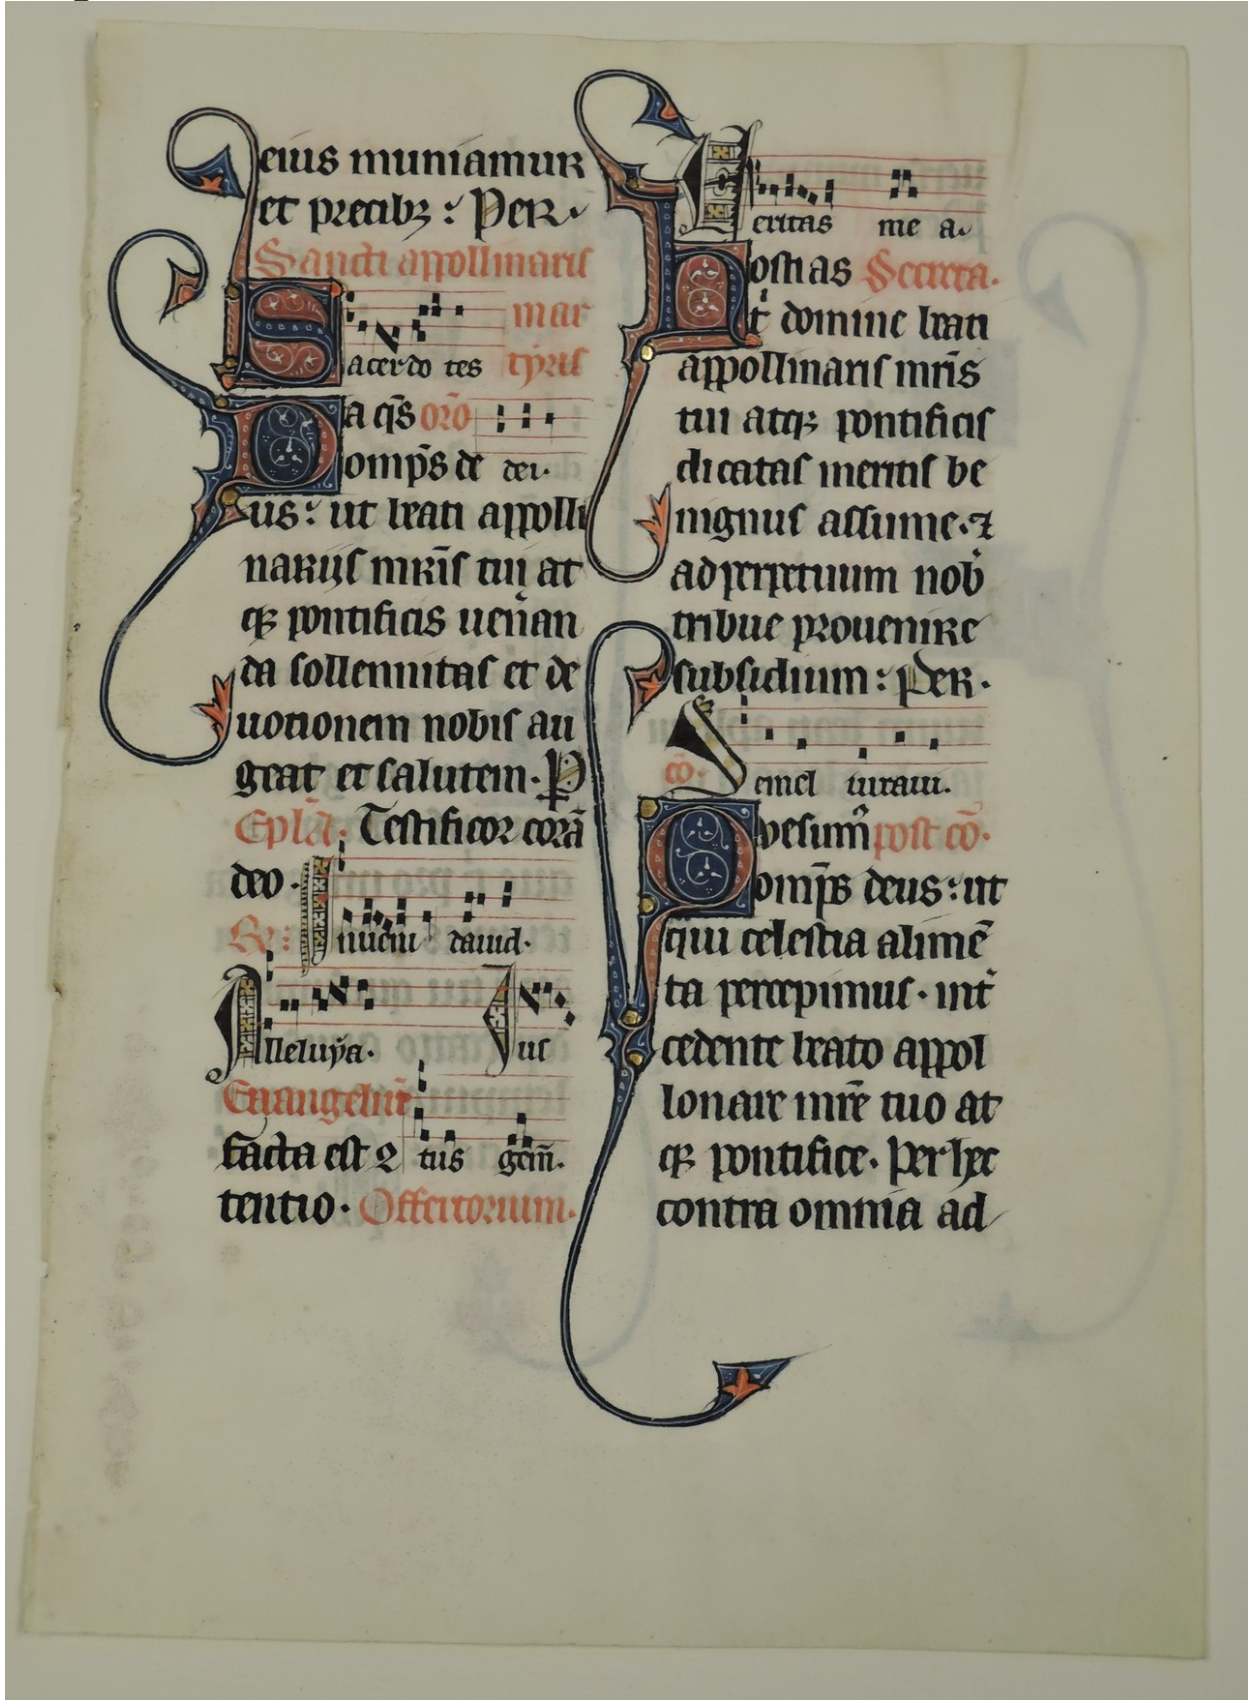 eius muniamur
et precibꝫ : Per.
Sancti appollinaris
mar
Sacerdo tes tyris
Da q̄s or̄o
omp̄s de dei.
us : ut beati appolli
narijs mr̄is tui at
qꝫ pontificis uen̄an
da sollennitas et de
uotionem nobis au
geat et salutem. P
Epl̄a. Testificor corā
deo.
R̄: Inueni dauid.
Alleluya. Iur
Euangeliū
facta est 2 tus gem̄.
tentio. Offertorium.
Veritas me a.
Hostias Secreta.
t̄ domine beati
appollinaris mr̄is
tui atqꝫ pontificis
dicatas meritis be
nignus assume. ⁊
ad perpetuum nob̄
tribue prouenire
subsidium : Per.
cō. Semel iuraui.
Quesum̄ post cō.
omp̄s deus : ut
qui celestia alimē
ta percepimus. int̄
cedente beato appol
lonare mr̄e tuo at
qꝫ pontifice. Per hec
contra omnia ad